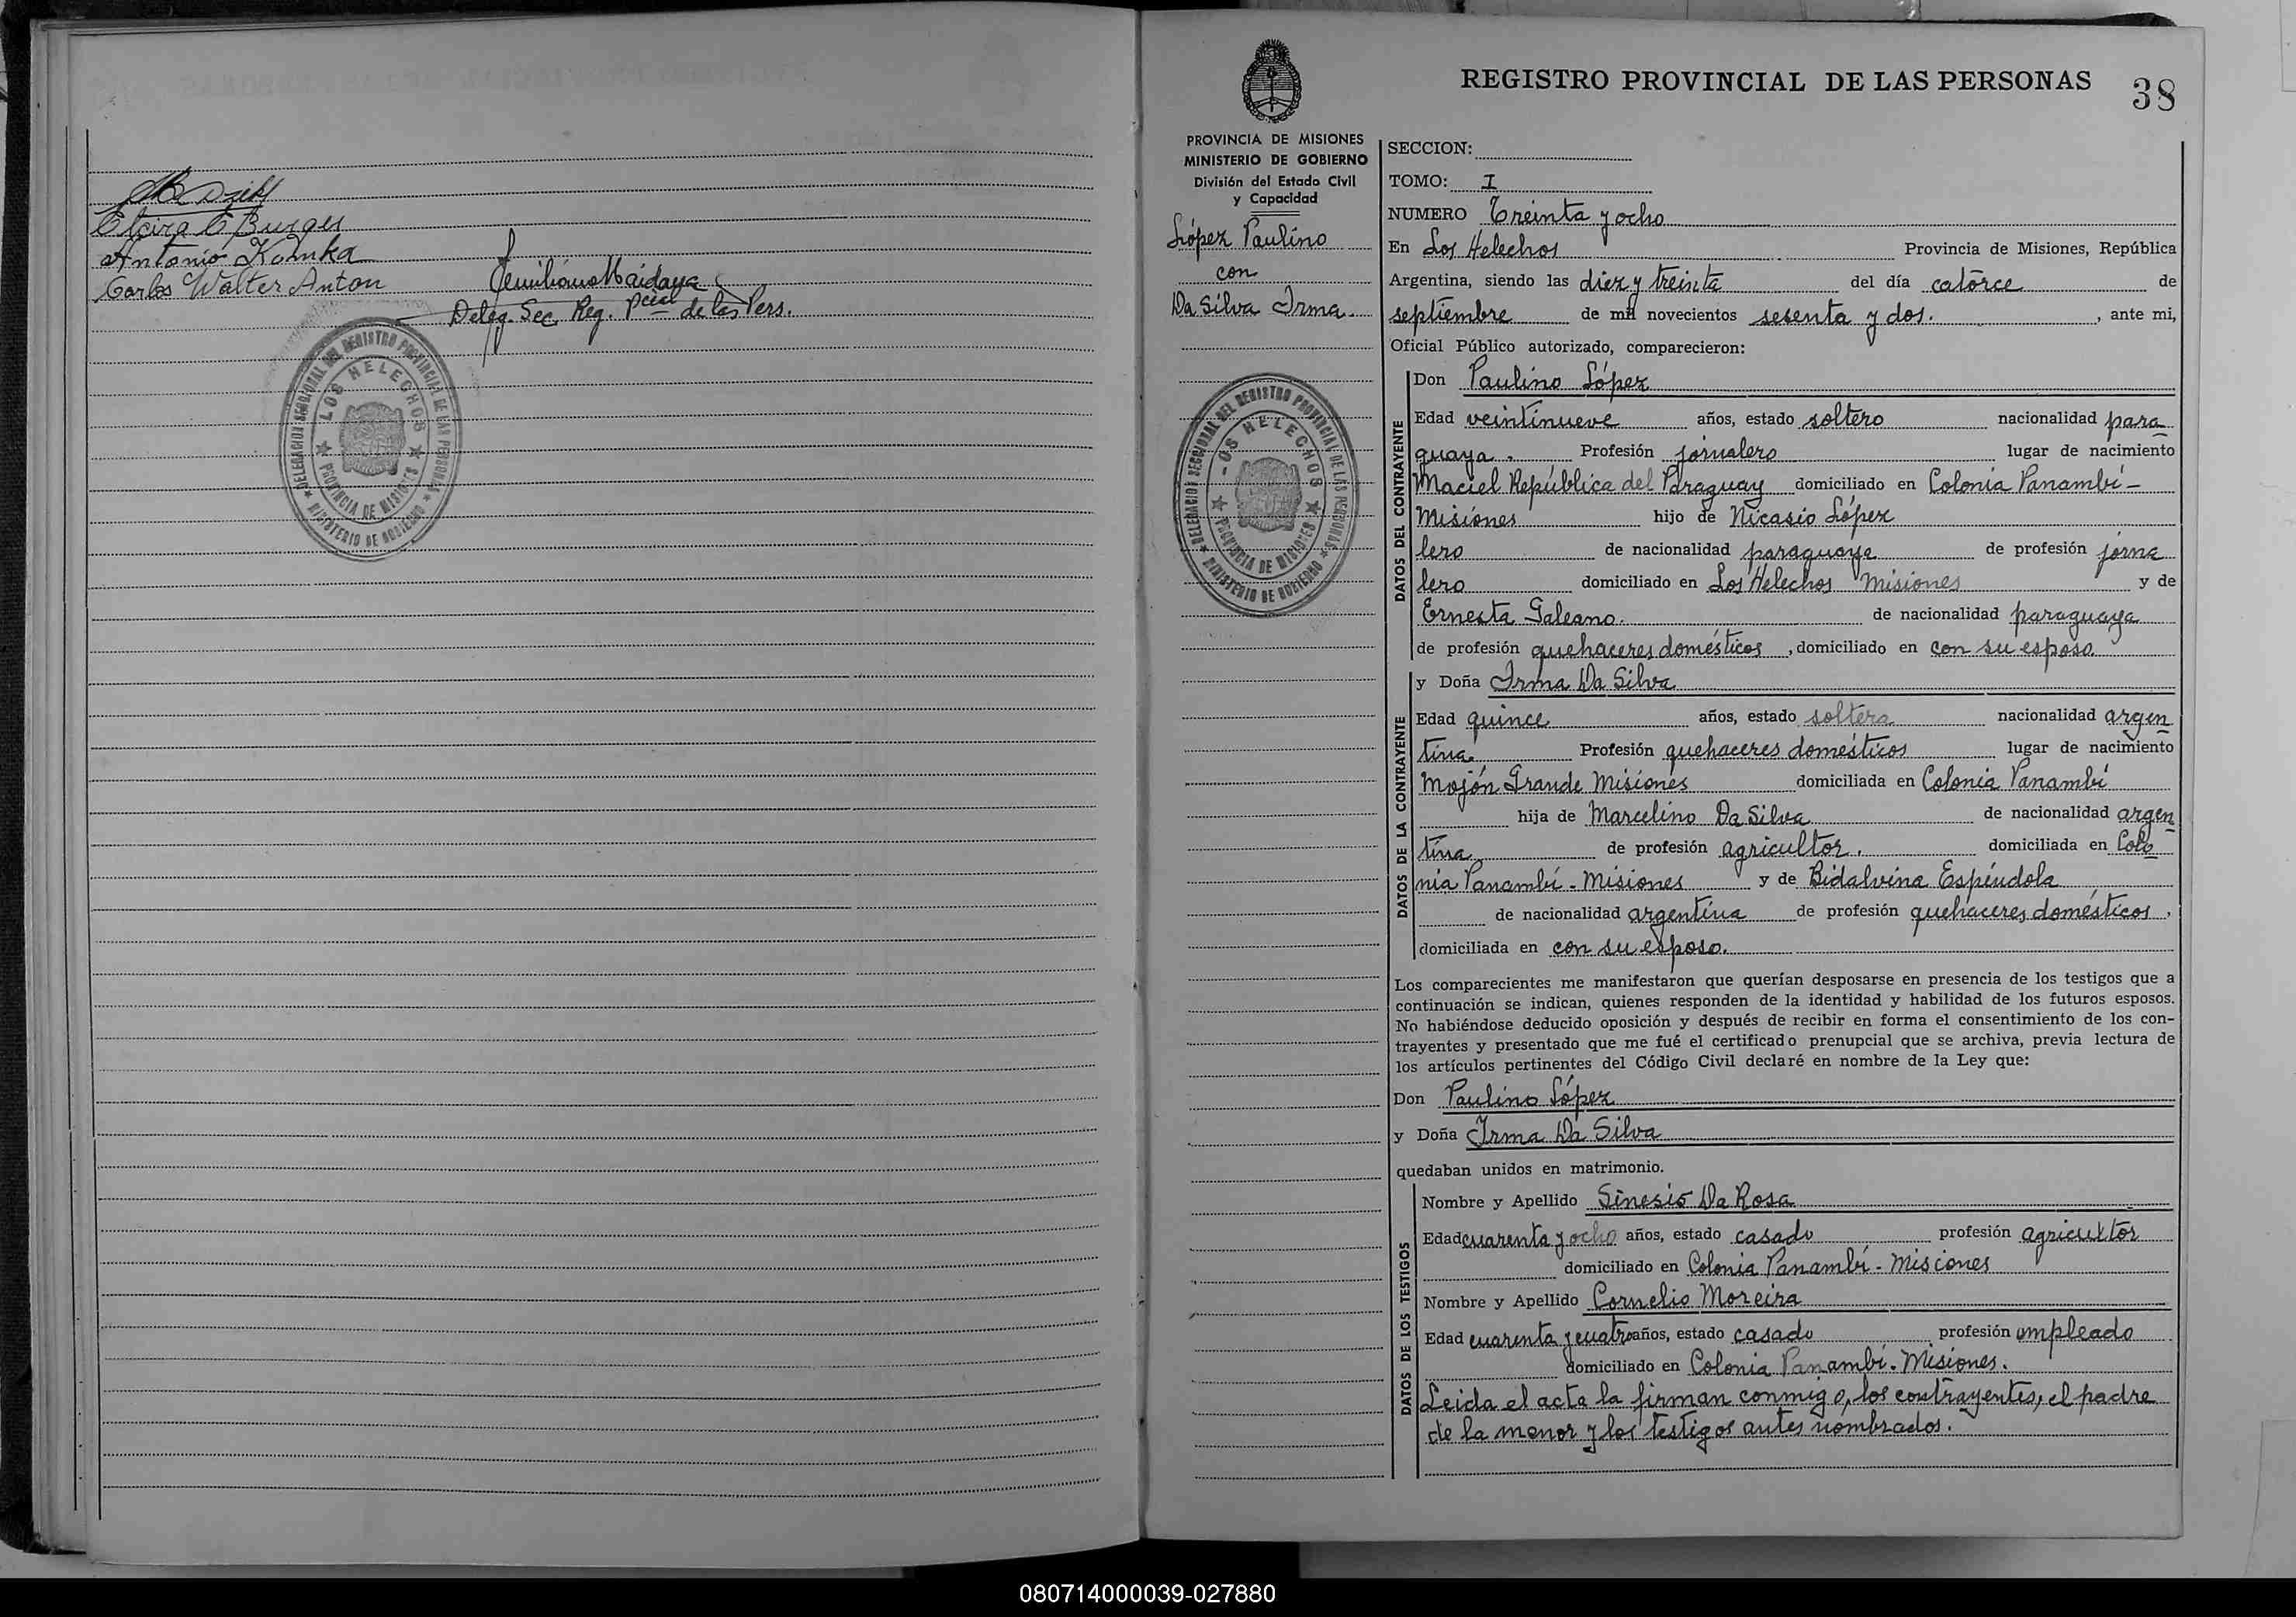 Elvira E Burger
Antonio Kahnka
Carlos Walter Anton
Deleg. Sec. Reg. Pcial de las Pers.
DELEGACION SECCIONAL DEL REGISTRO PROVINCIAL DE LAS PERSONAS
LOS HELECHOS
PROVINCIA DE MISIONES
MINISTERIO DE GOBIERNO
REGISTRO PROVINCIAL DE LAS PERSONAS
38
PROVINCIA DE MISIONES
MINISTERIO DE GOBIERNO
División del Estado Civil
y Capacidad
López Paulino
con
Da Silva Irma.
DELEGACION SECCIONAL DEL REGISTRO PROVINCIAL DE LAS PERSONAS
LOS HELECHOS
PROVINCIA DE MISIONES
MINISTERIO DE GOBIERNO
SECCION:
TOMO: I
NUMERO Treinta y ocho
En Los Helechos Provincia de Misiones, República
Argentina, siendo las diez y treinta del día catorce de
septiembre de mil novecientos setenta y dos. , ante mi,
Oficial Público autorizado, comparecieron:
DATOS DEL CONTRAYENTE
Don Paulino López
Edad veintinueve años, estado soltero nacionalidad para
guaya. Profesión jornalero lugar de nacimiento
Maciel República del Paraguay domiciliado en Colonia Panambí -
Misiones hijo de Nicasio López
lero de nacionalidad paraguaya de profesión jorna
lero domiciliado en Los Helechos Misiones y de
Ernesta Galeano. de nacionalidad paraguaya
de profesión quehaceres domésticos , domiciliado en con su esposo.
DATOS DE LA CONTRAYENTE
y Doña Irma Da Silva
Edad quince años, estado soltera nacionalidad argen
tina. Profesión quehaceres domésticos lugar de nacimiento
Mojón Grande Misiones domiciliada en Colonia Panambí
hija de Marcelino Da Silva de nacionalidad argen
tina de profesión agricultor. domiciliada en Colo
nia Panambí - Misiones y de Bidalvina Espíndola
de nacionalidad argentina de profesión quehaceres domésticos,
domiciliada en con su esposo.
Los comparecientes me manifestaron que querían desposarse en presencia de los testigos que a
continuación se indican, quienes responden de la identidad y habilidad de los futuros esposos.
No habiéndose deducido oposición y después de recibir en forma el consentimiento de los con-
trayentes y presentado que me fué el certificado prenupcial que se archiva, previa lectura de
los artículos pertinentes del Código Civil declaré en nombre de la Ley que:
Don Paulino López
y Doña Irma Da Silva
quedaban unidos en matrimonio.
DATOS DE LOS TESTIGOS
Nombre y Apellido Sinesio Da Rosa
Edad cuarenta y ocho años, estado casado profesión agricultor
domiciliado en Colonia Panambí - Misiones
Nombre y Apellido Cornelio Moreira
Edad cuarenta y cuatro años, estado casado profesión empleado
domiciliado en Colonia Panambí - Misiones.
Leida el acta la firman conmigo, los contrayentes, el padre
de la menor y los testigos antes nombrados.
080714000039-027880